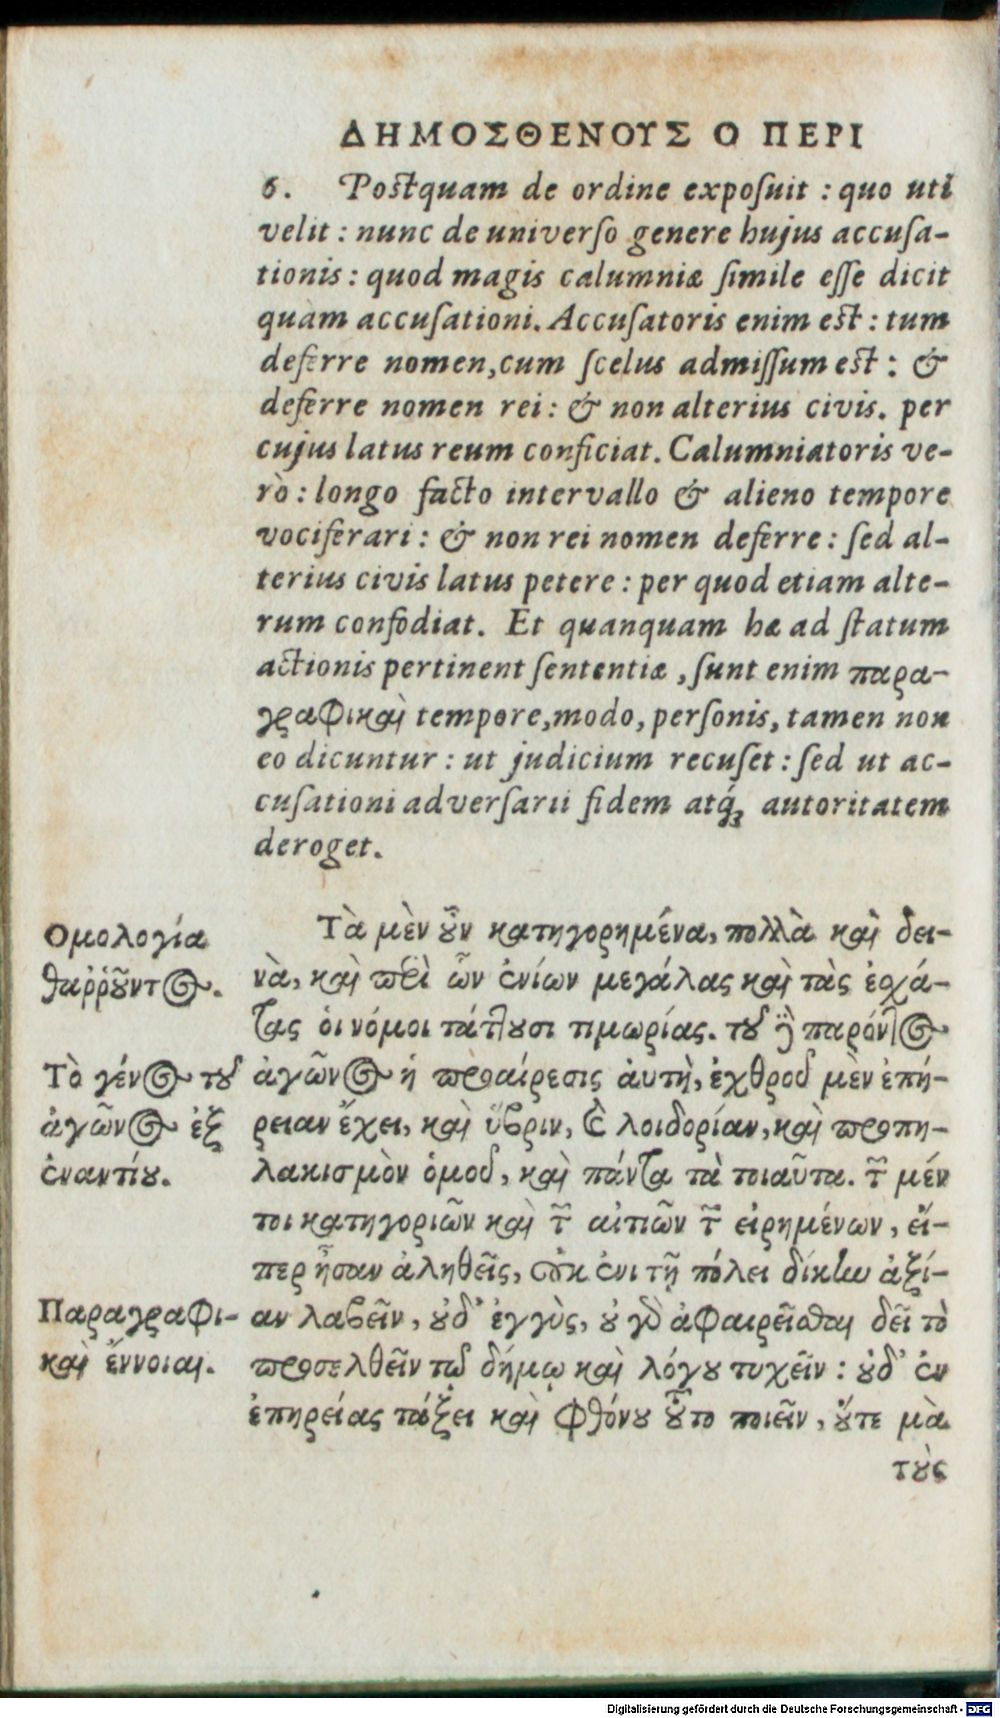 ΔΗΜΟΣΘΕΝΟΥΣ Ο ΠΕΡΙ
6. Postquam de ordine exposuit : quo uti
velit : nunc de universo genere hujus accusa-
tionis : quod magis calumniæ simile esse dicit
quàm accusationi. Accusatoris enim est : tum
deferre nomen, cum scelus admissum est : &
deferre nomen rei : & non alterius civis. per
cujus latus reum conficiat. Calumniatoris ve-
rò : longo facto intervallo & alieno tempore
vociferari : & non rei nomen deferre : sed al-
terius civis latus petere : per quod etiam alte-
rum confodiat. Et quanquam hæ ad statum
actionis pertinent sententiæ, sunt enim παρα-
γραφικαὶ tempore, modo, personis, tamen non
eo dicuntur : ut judicium recuset : sed ut ac-
cusationi adversarii fidem atq́ꝫ autoritatem
deroget.
Ομολογία
θαῤῥοῦντος.
Τὸ γένος τοῦ
ἀγῶνος ἐξ
ἐναντίου.
Παραγραφι-
καὶ ἔννοιαι.
Τὰ μὲν οὖν κατηγορημένα, πολλὰ καὶ δει-
νὰ, καὶ περὶ ὧν ἐνίων μεγάλας καὶ τὰς ἐσχά-
τας οἱ νόμοι τάττουσι τιμωρίας. τοῦ δὲ παρόντος
ἀγῶνος ἡ προαίρεσις αὐτὴ, ἐχθροῦ μὲν ἐπή-
ρειαν ἔχει, καὶ ὕβριν, καὶ λοιδορίαν, καὶ προπη-
λακισμὸν ὁμοῦ, καὶ πάντα τὰ τοιαῦτα. τῶν μέν
τοι κατηγοριῶν καὶ τῶν αἰτιῶν τῶν εἰρημένων, εἴ-
περ ἦσαν ἀληθεῖς, οὐκ ἐνι τῇ πόλει δίκην ἀξί-
αν λαβεῖν, οὐδ' ἐγγὺς, οὐ γὰρ ἀφαιρεῖσθαι δεῖ τὸ
προσελθεῖν τῷ δήμῳ καὶ λόγου τυχεῖν : οὐδ' ἐν
ἐπηρείας τάξει καὶ φθόνου τοῦτο ποιεῖν, οὔτε μὰ
τοὺς
Digitalisierung gefördert durch die Deutsche Forschungsgemeinschaft - DFG